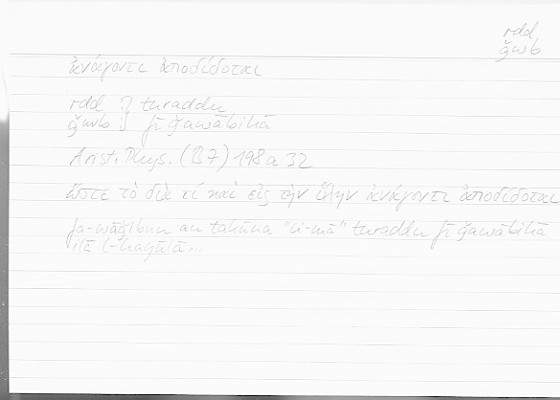 rdd
ǧwb
ἀνάγοντι ἀποδίδοται
rdd } turaddu
ǧwb } fī ǧawābihā
Arist. Phys. (B7) 198 a 32
ὥστε τὸ διὰ τί καὶ εἰς τὴν ὕλην ἀνάγοντι ἀποδίδοται
fa-wāǧibun an takūna "li-mā" turaddu fī ǧawābihā
ilā l-hayūlā...